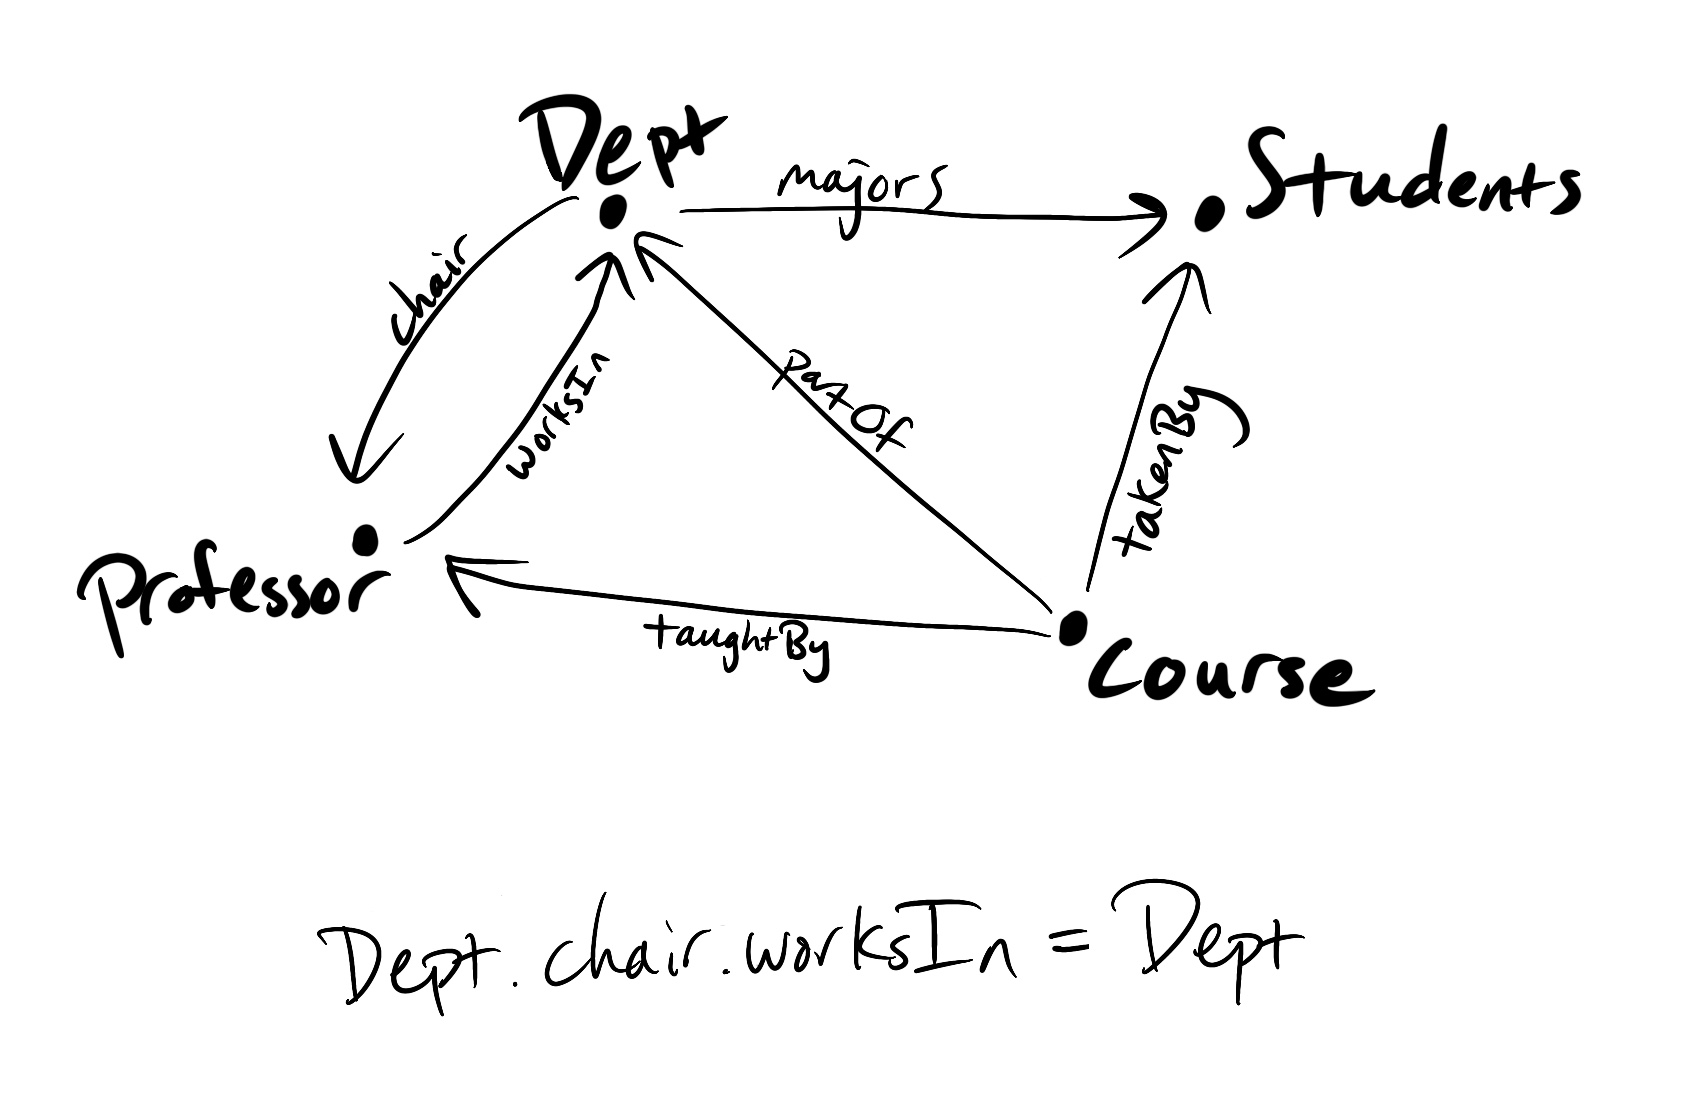 Dept
majors
Students
chair
worksIn
partOf
takenBy
Professor
taughtBy
Course
Dept.chair.worksIn = Dept